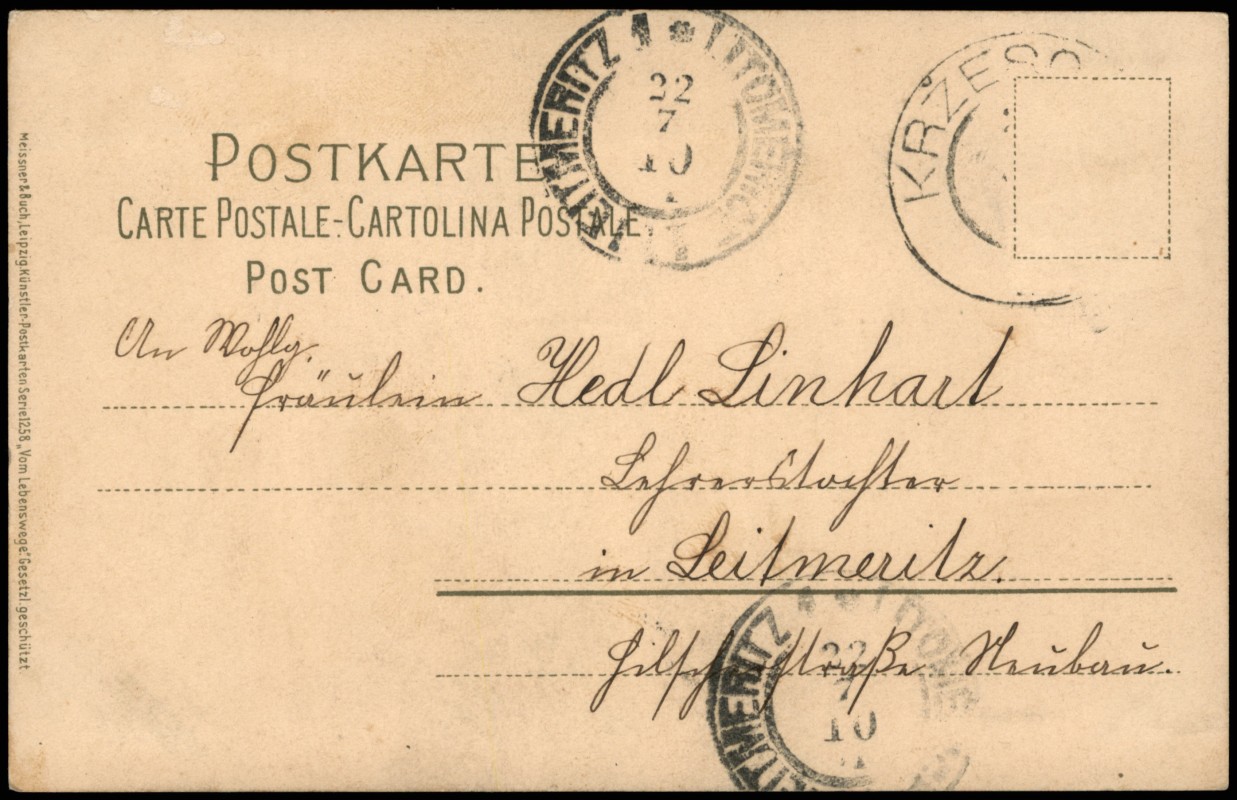 POSTKARTE
CARTE POSTALE-CARTOLINA POSTALE.
POST CARD.
LEITMERITZ 1 * LITOMĚŘICE
22
7
10
KRZESO
An Wohlg.
Fräulein Hedl Linhart
Lehrerstochter
in Leitmeritz.
straße Neubau.
LEITMERITZ 1 * LITOMĚ
22
7
10
Meissner & Buch, Leipzig. Künstler-Postkarten Serie 1258 „Vom Lebenswege“. Gesetzl. geschützt